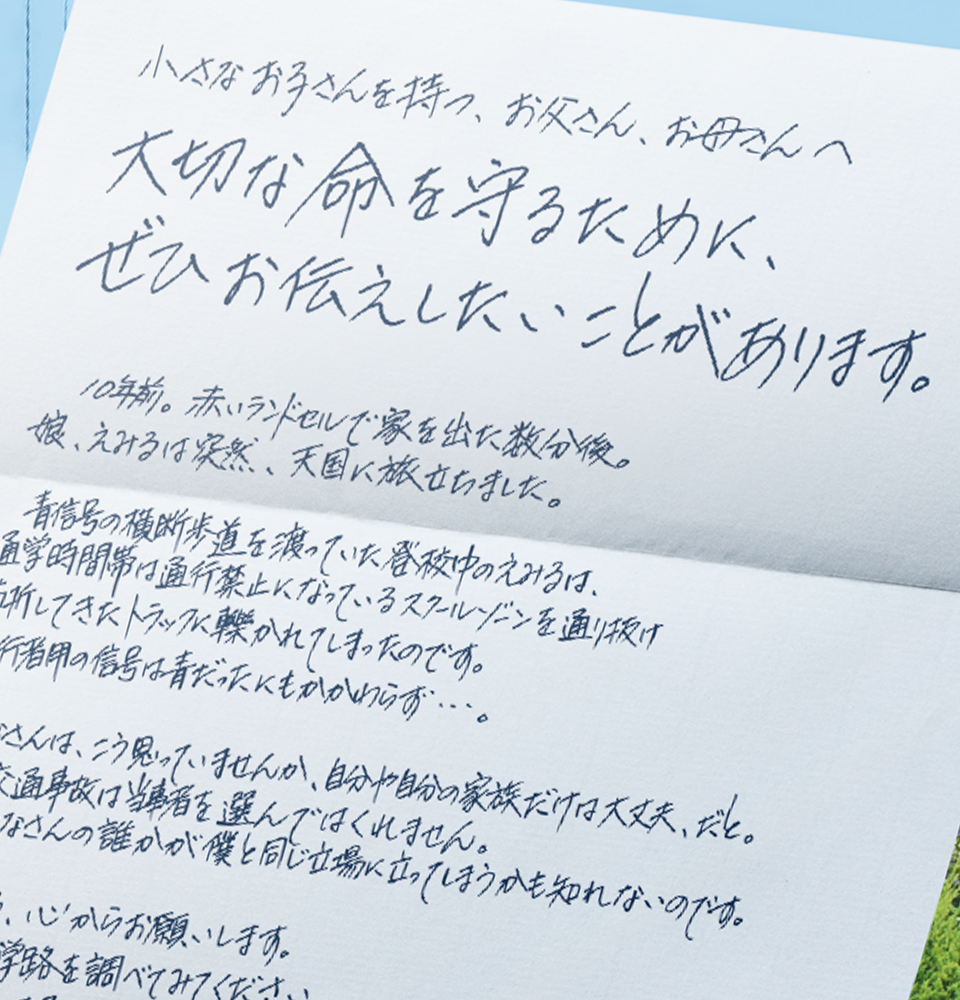 小さなお子さんを持つ、お父さん、お母さんへ
大切な命を守るために、
ぜひお伝えしたいことがあります。
10年前。赤いランドセルで家を出た数分後。
娘、えみるは突然、天国に旅立ちました。
青信号の横断歩道を渡っていた登校中のえみるは、
通学時間帯は通行禁止になっているスクールゾーンを通り抜け
折してきたトラックに轢かれてしまったのです。
行者用の信号は青だったにもかかわらず…。
さんは、こう思っていませんか、自分や自分の家族だけは大丈夫、だと。
交通事故は当事者を選んではくれません。
なさんの誰かが僕と同じ立場に立ってしまうかも知れないのです。
、心からお願いします。
学路を調べてみてください